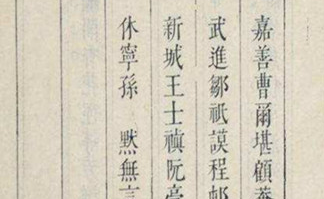 嘉善曹爾堪顧菴
武進鄒祗謨程邨
新城王士禛阮亭
休寧孫　默無言